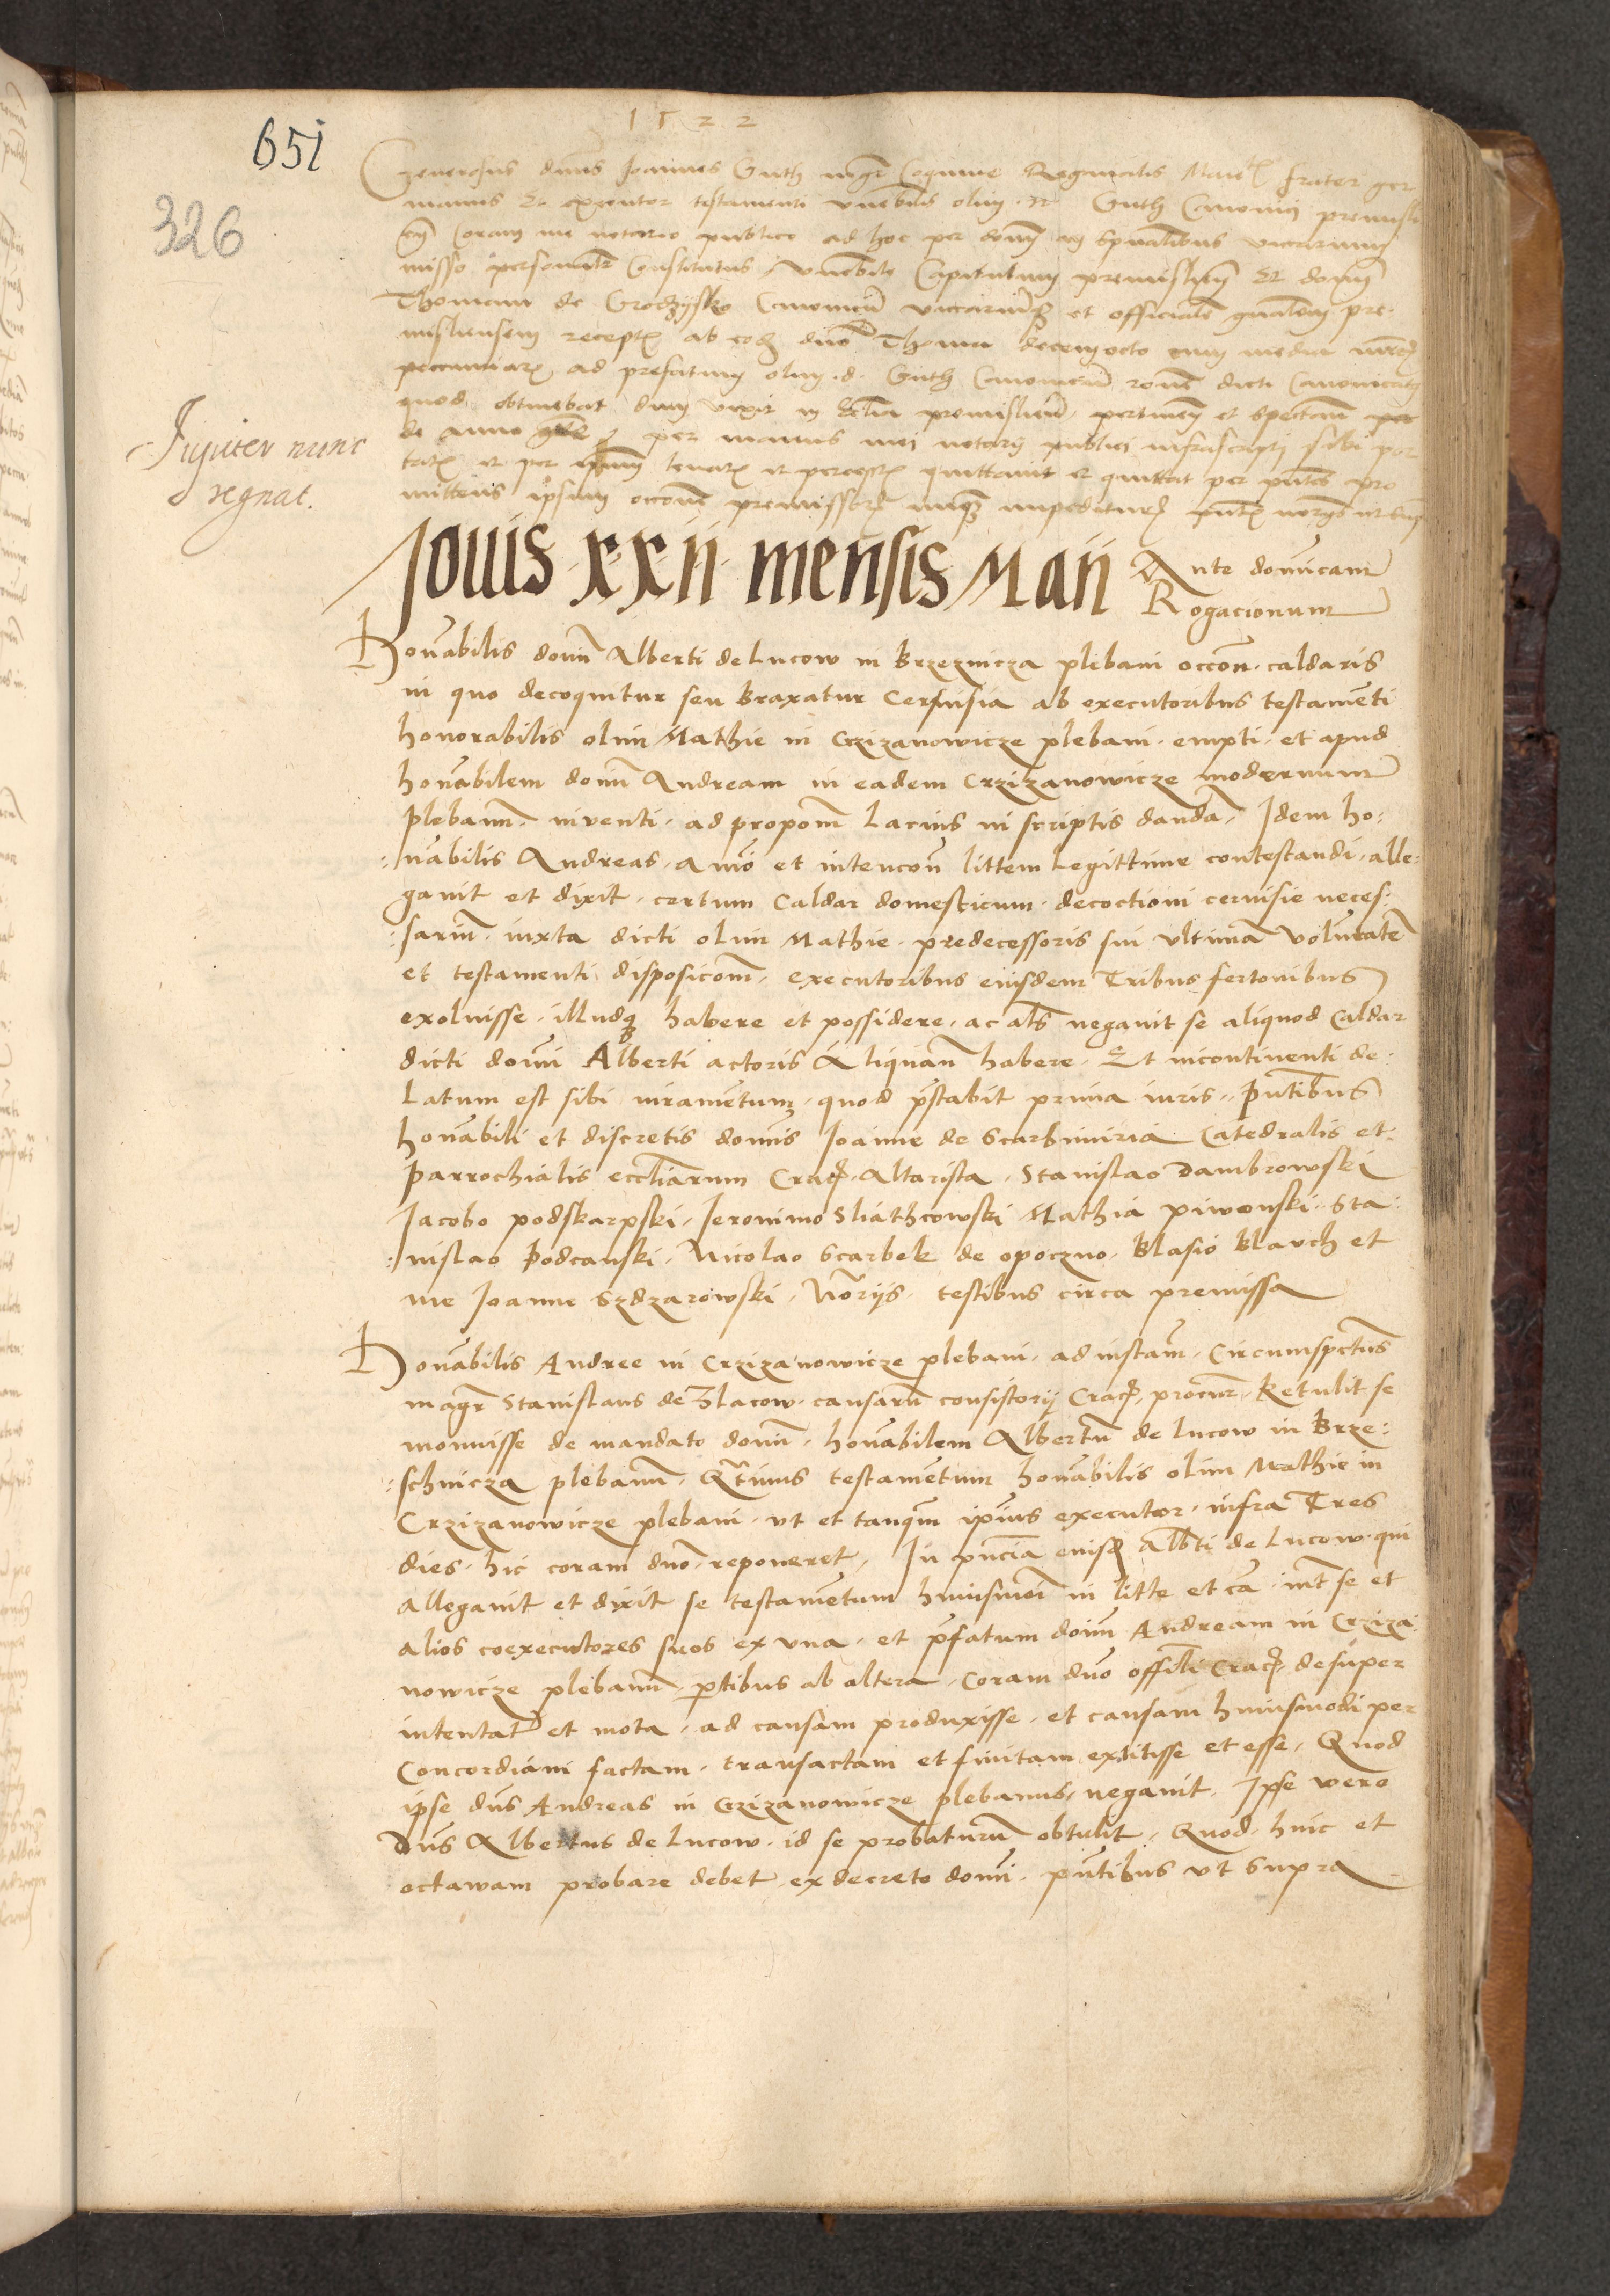 1522
651
326
Generosus dnus Joannes Guth mgr Coquine Reginalis Maiet frater ger
manus et executor testamenti venebilis olim Guth Canonici premisli
coram me notario publico ad hoc per donu in spualibus vicarium
misso personalr Constitutus Venebile Capitulum premislien et donu
Thomam de Grodzysko Canonicu vicariuq et officialem gnalem pre
misliensem recept ab eod dno Thoma decem octo cum media
peccuniar ad prefatum olim d. Guth Canonicu rone dicti Canonicatus
quod obtinebat dum vixit in Eclia premislien pertinen et spectan
de anno per manus mei notarij publici infrascripti sibi por
tat et per levat et percept quittavit et quittat per pntes pro
mittens ipsum occone premissor nunq impeditur
Jupiter nunc
regnat.
Jovis xxii mensis Maij Ante domicam
Rogacionum
Honabilis domi Alberti de Lucow in Brzeznicza plebani occon. caldaris
in quo decoquitur seu Braxatur Cervisia ab executoribus testamenti
honorabilis olim Mathie in Crzizanowicze plebani. empti. et apud
honabilem domi Andream in eadem Crzizanowicze modernum
plebanu. inventi. ad propom Lacius in scriptis danda. Idem ho:
:nabilis Andreas. amo et intencon littem Legittime contestandi. alle:
gavit et dixit. certum Caldar domesticum. decoctioni cervisie neces:
:sariu. iuxta dicti olim Mathie. predecessoris sui ultima voluntate
et testamenti disposicom. executoribus eiusdem Tribus fertonibus
exolvisse. illudq habere et possidere. ac als negavit se aliquod Caldar
dicti domi Alberti actoris Aliquan habere. Et incontinenti de:
Latum est sibi iuramentum. quod pstabit prima iuris. Pntibus
honabili et discretis domis Joanne de Scarbimiria Catedralis et
Parrochialis eccliarum Crac. Altarista. Stanislao Dambrowski
Jacobo podskarpski. Jeronimo Sliathcowski Mathia piwonski. Sta:
:nislao Podcanski. Nicolao Scarbek de opoczno. Blasio Blavch et
me Joanne Szdzarowski. Norijs. testibus circa premissa
Honabilis Andree in Crzizanowicze plebani. ad instam. Circumspctus
magr Stanislaus de Zlacow. causaru consistorij Crac. procur. Retulit se
monuisse de mandato domi. honabilem Albertu de Lucow in Brze:
:schnicza plebanu. Qtinus testamentum honabilis olim Mathie in
Crzizanowicze plebani. ut et tanqm ipius executor. infra Tres
dies. hic coram dno. reponeret. In pncia eiusd Albti de Lucow. qui
allegavit et dixit se testamentum huiusmoi in litte et ca. int se et
alios coexecutores suos ex una. et pfatum domi Andream in Crziza:
nowicze plebanu. ptibus ab altera. Coram dno offili Crac. desuper
intentat et mota. ad causam produxisse. et causam huiusmodi per
Concordiam factam. transactam et finitam extitisse et esse. Quod
ipse dns Andreas in Crzizanowicze plebanus. negavit. Ipse vero
Dns Albertus de Lucow. id se probaturu obtulit. Quod. hinc et
octawam probare debet. ex decreto domi. pntibus ut supra